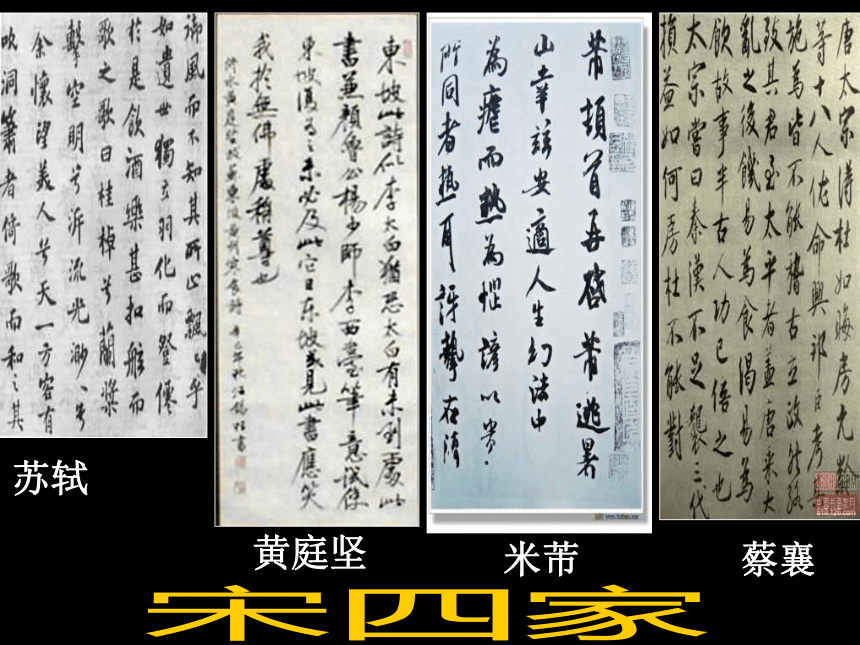 御風而不知其所止飄々乎
如遺世獨立羽化而登僊
於是飲酒樂甚扣舷而
歌之歌曰桂棹兮蘭槳
擊空明兮泝流光渺々兮
余懷望美人兮天一方客有
吹洞簫者倚歌而和之其
東坡此詩似李太白猶恐太白有未到處此
書兼顏魯公楊少師李西臺筆意試使
東坡復為之未必及此它日東坡或見此書應笑
我於無佛處稱尊也
芾頓首再啓芾逃暑
山幸茲安適人生幻法中
為瘧而熱為惱諺以貴
所同者熱耳訝挈在清
唐太宗得杜如晦房玄齡
等十八人佐命興邦臣考其
施為皆不能稽古立政然
致其君至太平者蓋唐承大
亂之後饑易為食渴易為
飲故事半古人功已倍之也
太宗嘗曰秦漢不足襲三代
損益如何房杜不能對
苏轼
黄庭坚
米芾
蔡襄
宋四家